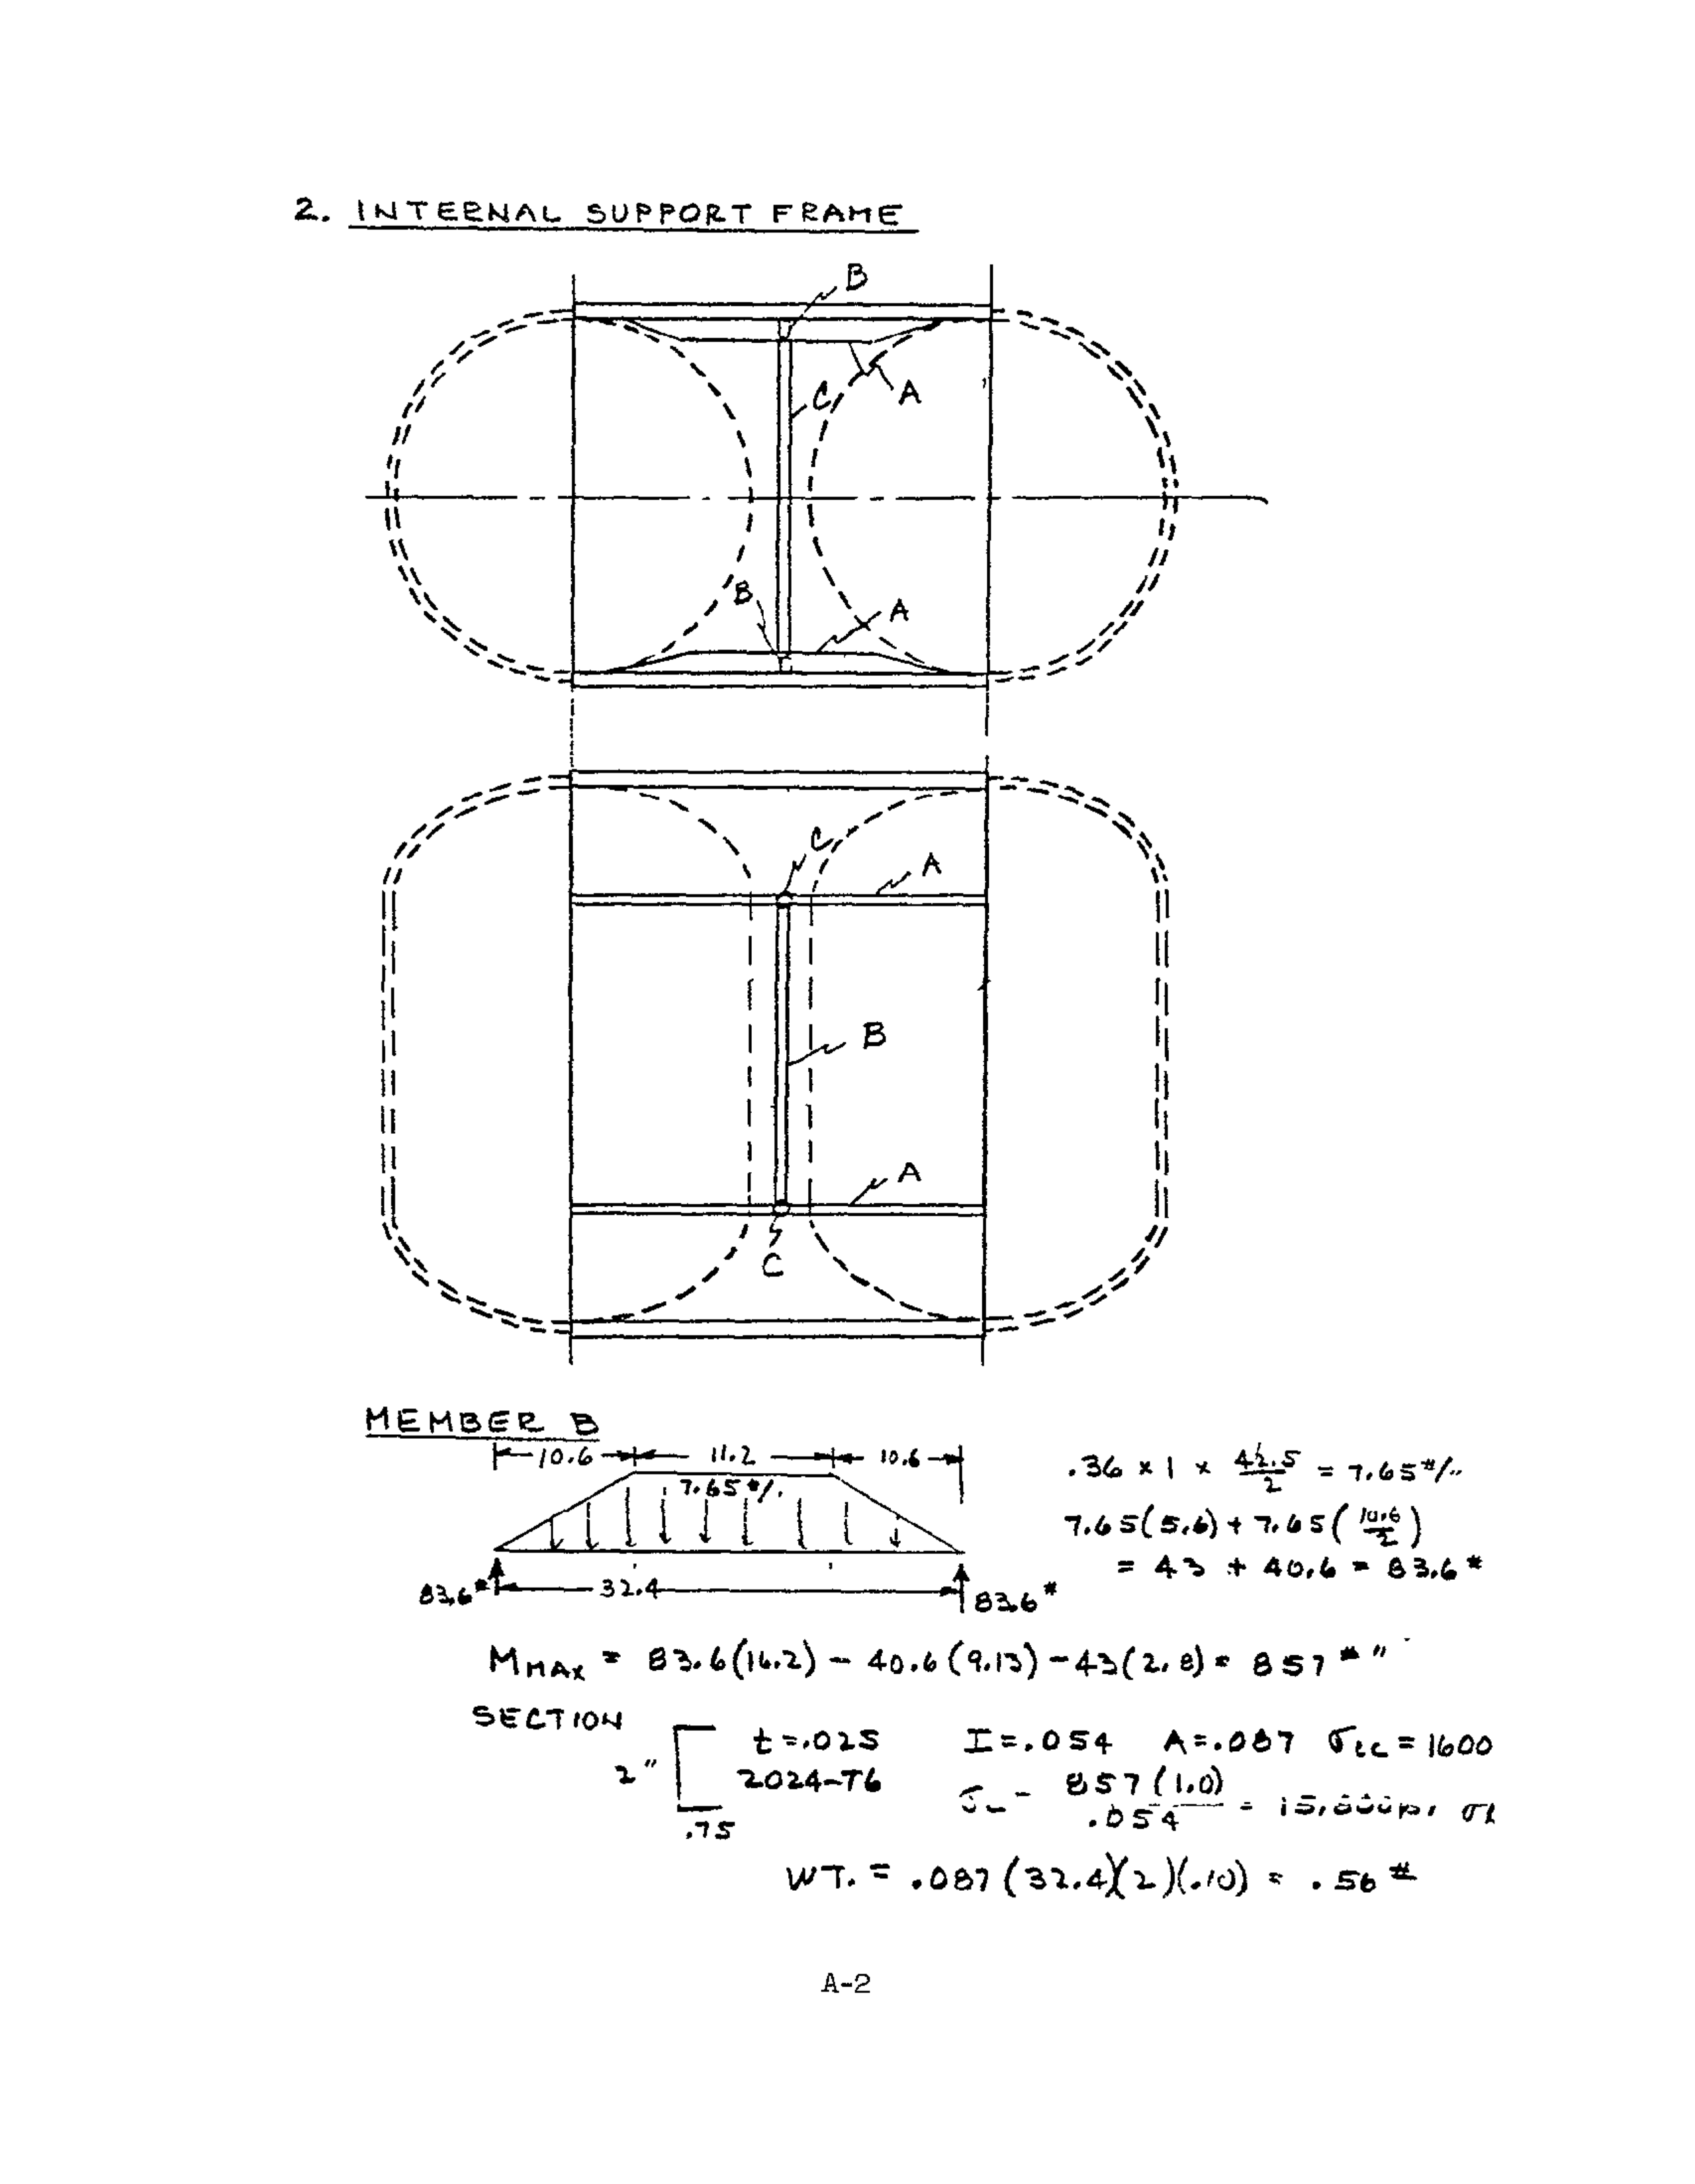 2. INTERNAL SUPPORT FRAME
B
C
A
B
A
C
A
B
A
C
MEMBER B
10.6 11.2 10.6
7.65 #/"
83.6# 32.4 83.6#
.36 × 1 × 42.5/2 = 7.65 #/"
7.65(5.6) + 7.65(10.6/2)
= 43 + 40.6 = 83.6 #
M MAX = 83.6(16.2) - 40.6(9.13) - 43(2.8) = 857 # "
SECTION
2" t = .025 I = .054 A = .087 σcc = 1600
2024-T6 857(1.0)/.054 =
.75
WT. = .087(32.4)(2)(.10) = .56 #
A-2